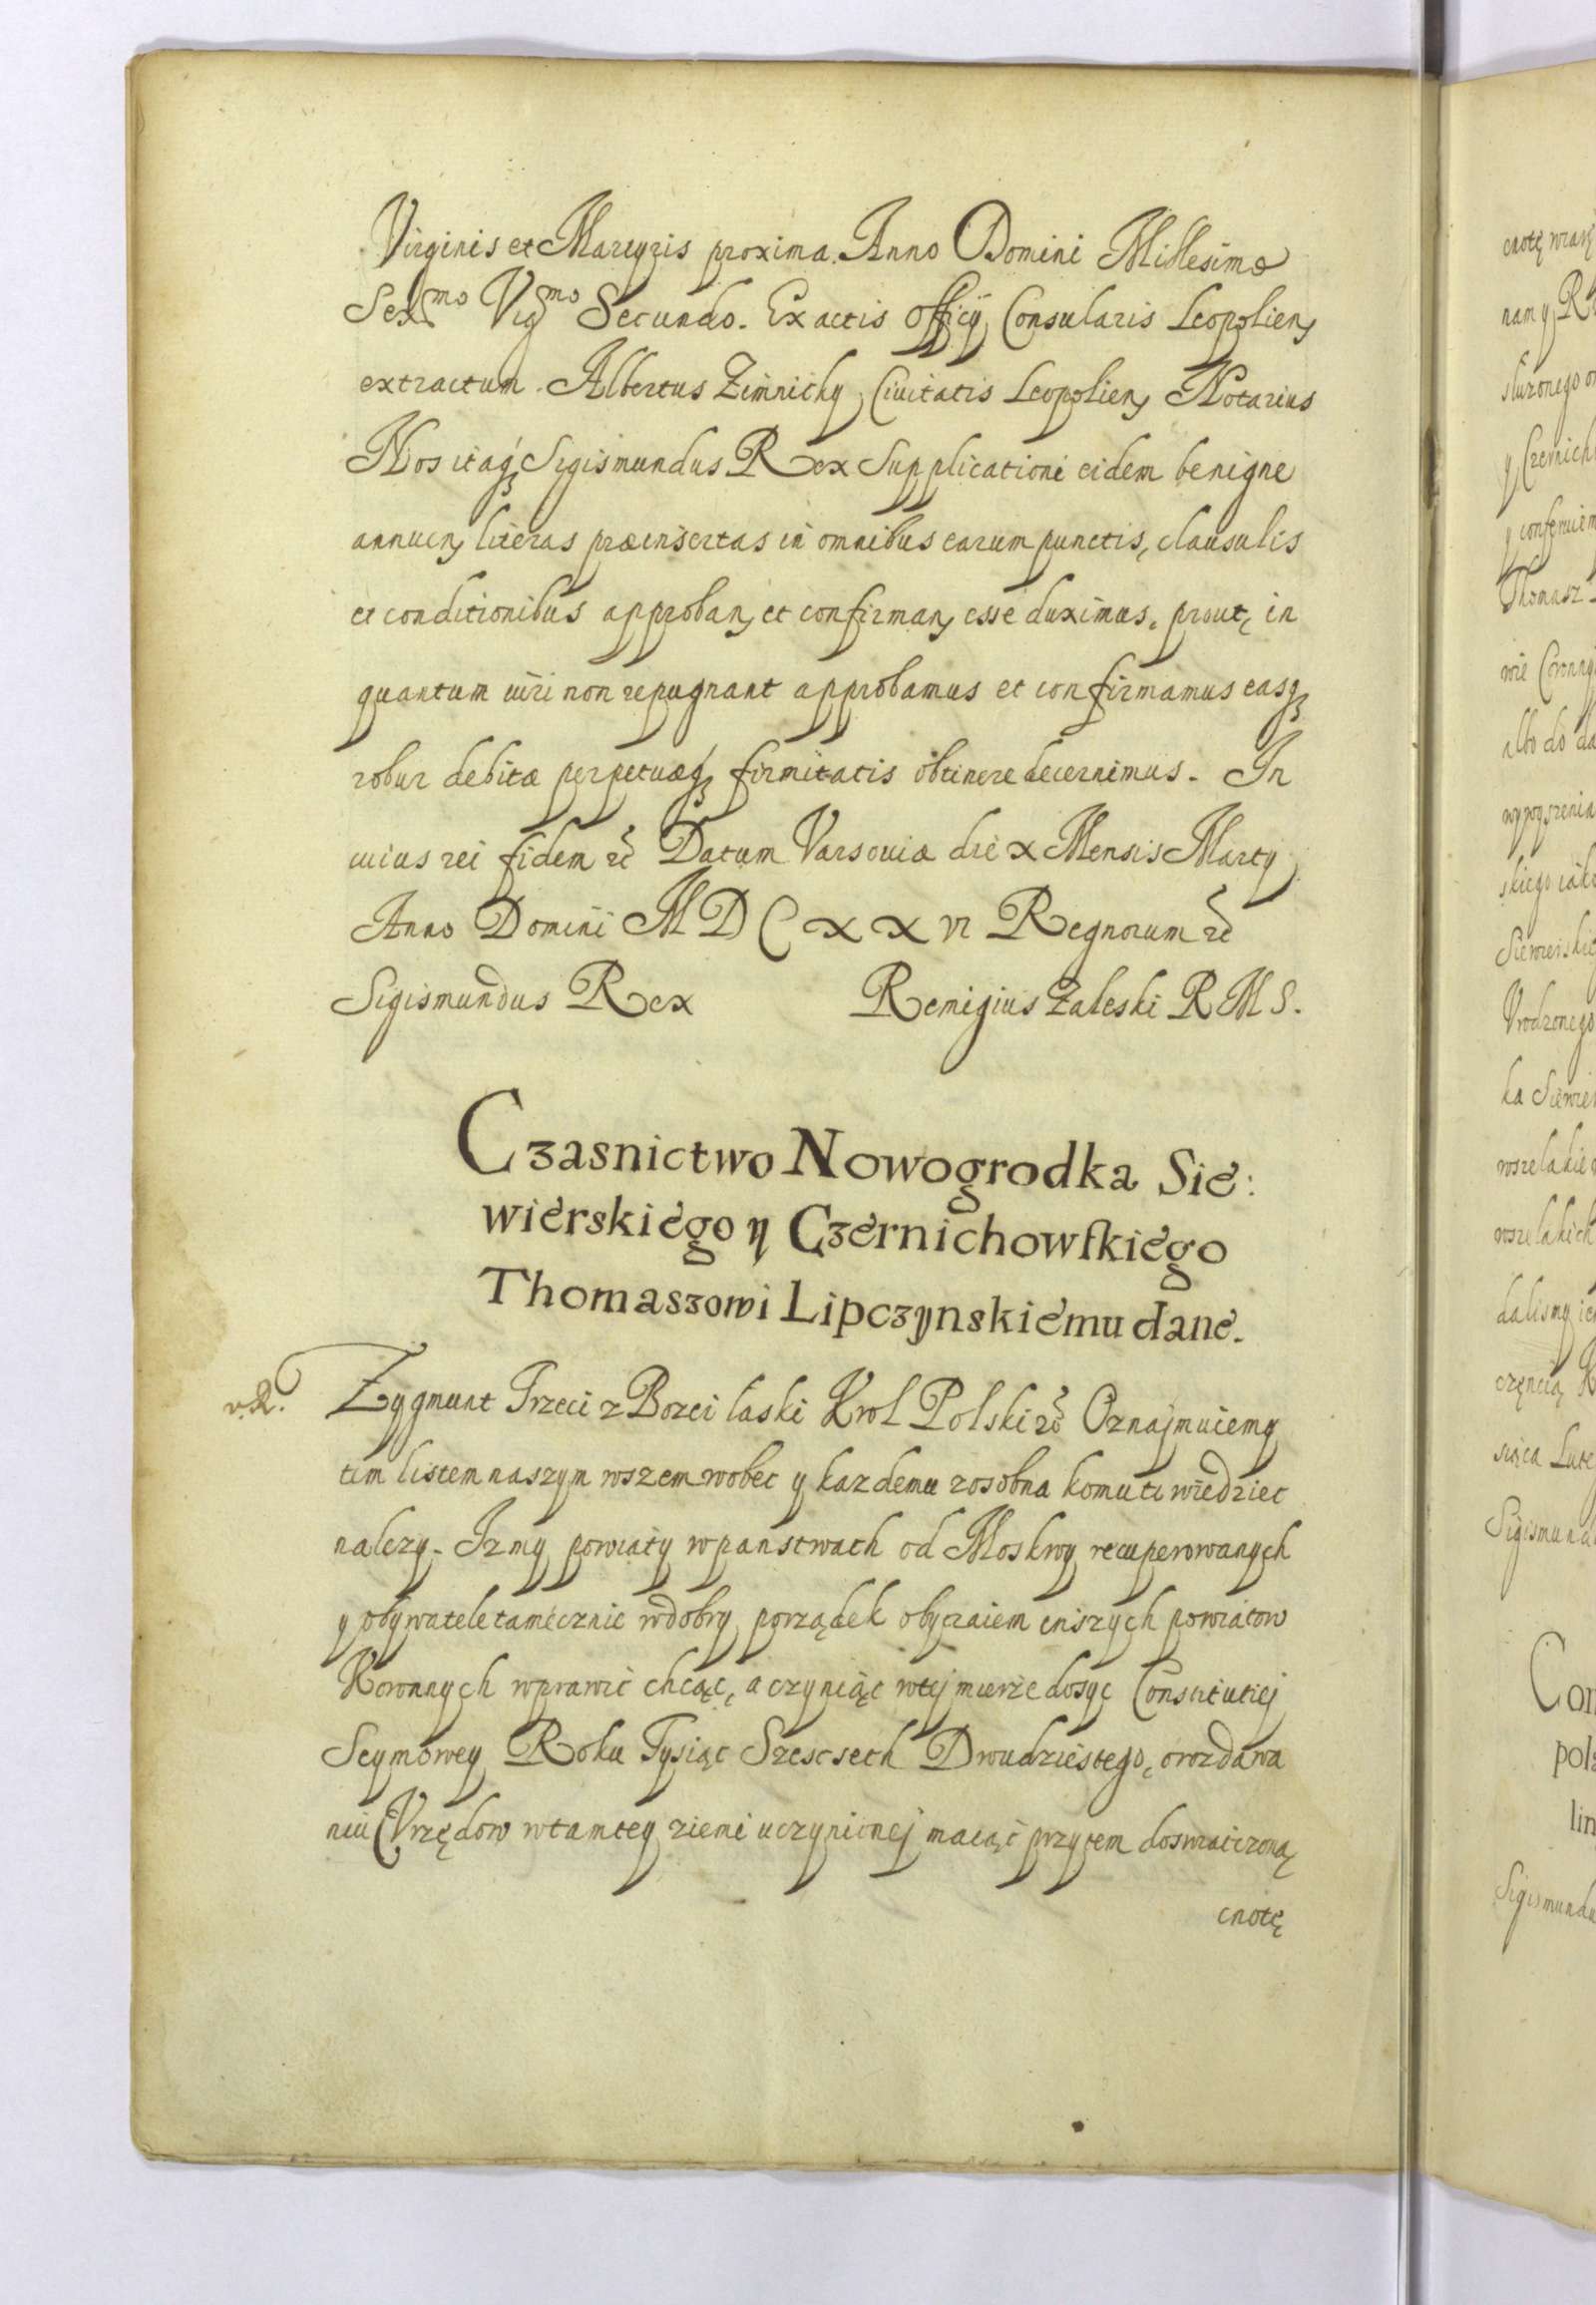 Virginis et Martyris proxima. Anno Domini Millesimo
Sexmo Vigmo Secundo. Ex actis officij Consularis Leopolien,
extractum. Albertus Zimnicky Ciuitatis Leopolien, Notarius
Nos itaq, Sigismundus Rex Supplicationi eidem benigne
annuen, literas præinsertas in omnibus earum punctis, clausulis
et conditionibus approban, et confirman, esse duximus, prout, in
quantum iuri non repugnant approbamus et confirmamus easq,
robur debitæ perpetuæq, firmitatis obtinere decernimus. In
cuius rei fidem etc Datum Varsouiæ die X Mensis Marty
Anno Domini MDCXXVI Regnorum etc
Sigismundus Rex Remigius Zaleski R M S.
Czasnictwo Nowogrodka Sie:
wierskiego y Czernichowskiego
Thomaszowi Lipczynskiemu dane.
Zygmunt Trzeci z Bozei łaski Krol Polski etc Oznajmuiemy
tim listem naszym wszem wobec y kazdemu zosobna komu ti wiedziec
nalezy. Izmy powiaty w panstwach od Moskwy recuperowanych
y obywatele tamecznie w dobry porządek obyczaiem inszych powiatow
Koronnych wprawić chcąc, a czyniąc wtej mierze dosyc Constitutiej
Seymowey Roku Tysiąc Szescsech Dwudziestego, o rozdawa
niu Vrzędow w tamtey ziemi uczynionej maiąc przytem doswiatczoną
cnotę
cnotę
nam y
y Czernich
Thomasz
albo do
Vrodzonego
wszelakich
dalismy